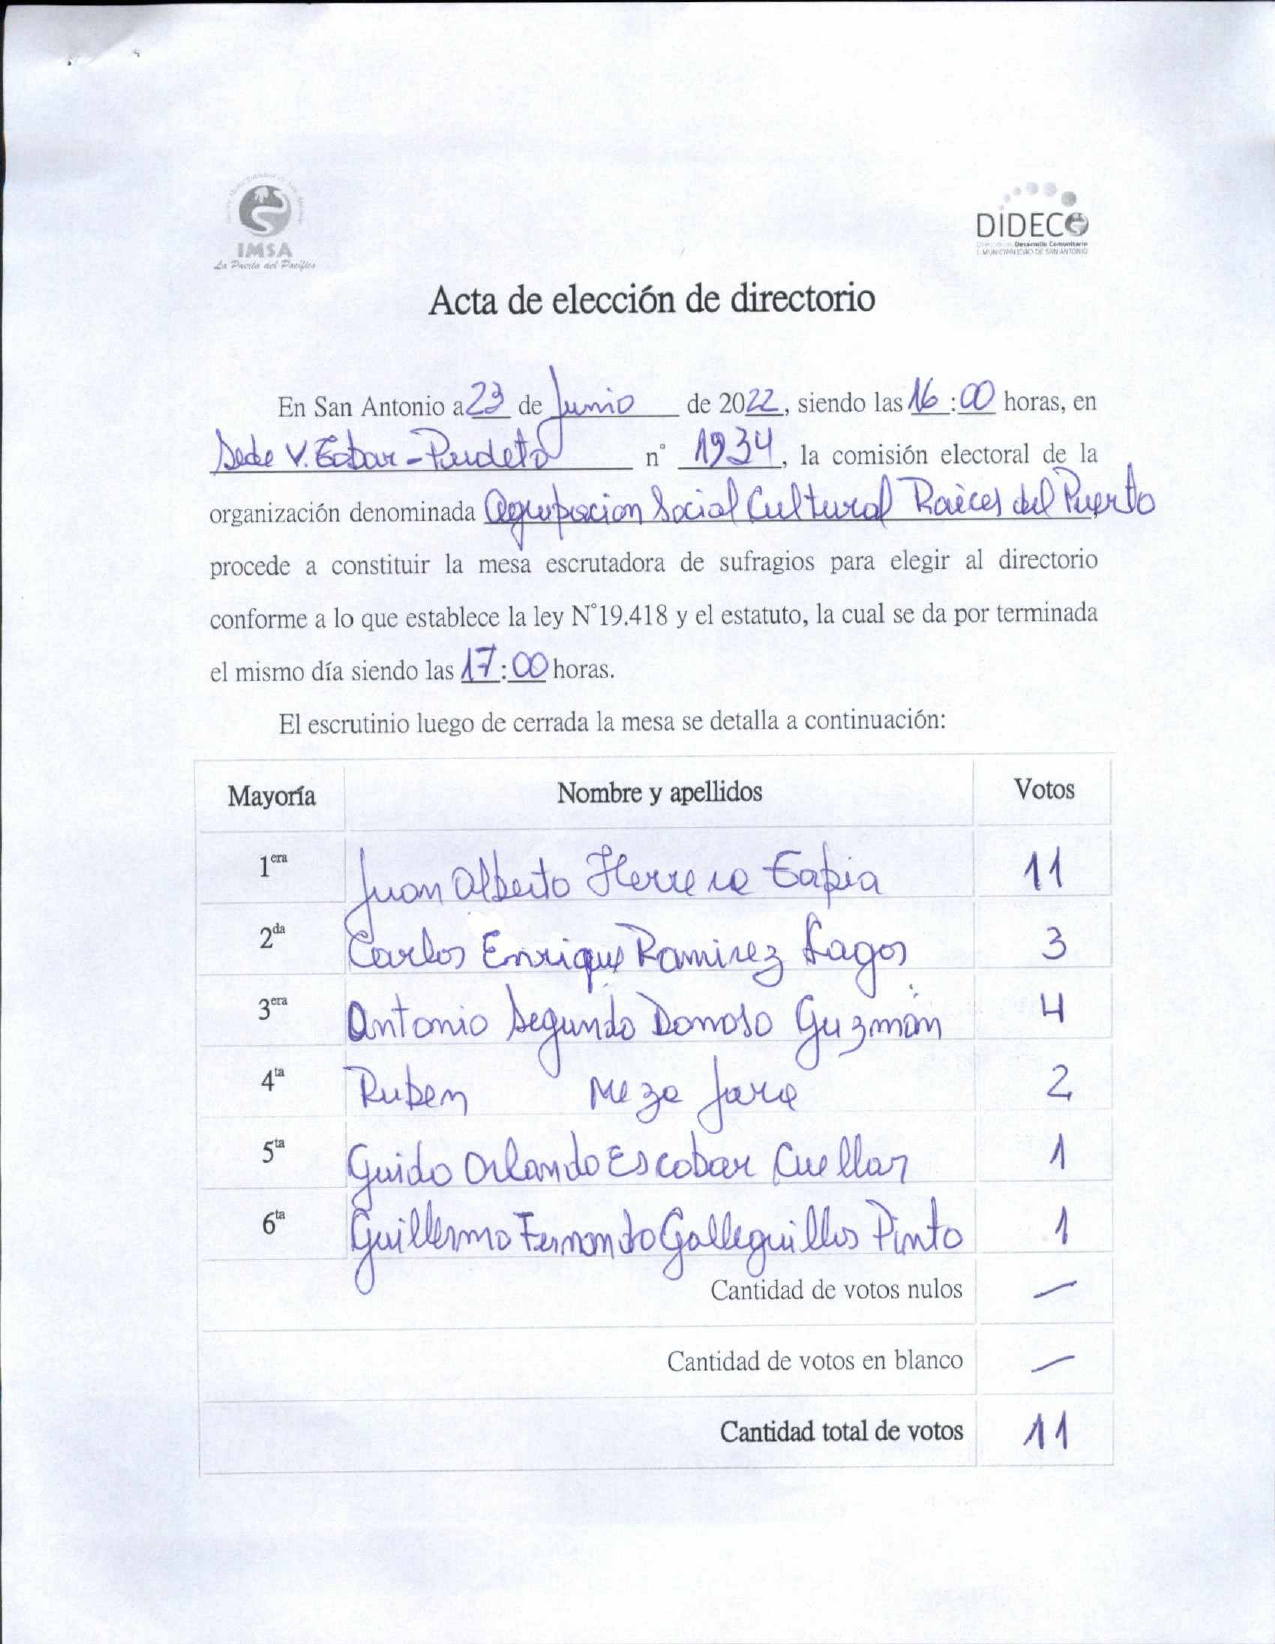 IMSA
La Puerta del Pacífico
DIDECO
Desarrollo Comunitario
I. MUNICIPALIDAD DE SAN ANTONIO
Acta de elección de directorio
En San Antonio a 23 de Junio de 2022, siendo las 16:00 horas, en
Sede V. Escobar - Pudeto n° 1934, la comisión electoral de la
organización denominada Agrupacion Social Cultural Raices del Puerto
procede a constituir la mesa escrutadora de sufragios para elegir al directorio
conforme a lo que establece la ley N°19.418 y el estatuto, la cual se da por terminada
el mismo día siendo las 17:00 horas.
El escrutinio luego de cerrada la mesa se detalla a continuación:
Mayoría Nombre y apellidos Votos
1era Juan Alberto Herrera Tapia 11
2da Carlos Enrique Ramirez Lagos 3
3era Antonio Segundo Donoso Guzmán 4
4ta Ruben Meza Jara 2
5ta Guido Orlando Escobar Cuellar 1
6ta Guillermo Fernando Galleguillos Pinto 1
Cantidad de votos nulos —
Cantidad de votos en blanco —
Cantidad total de votos 11